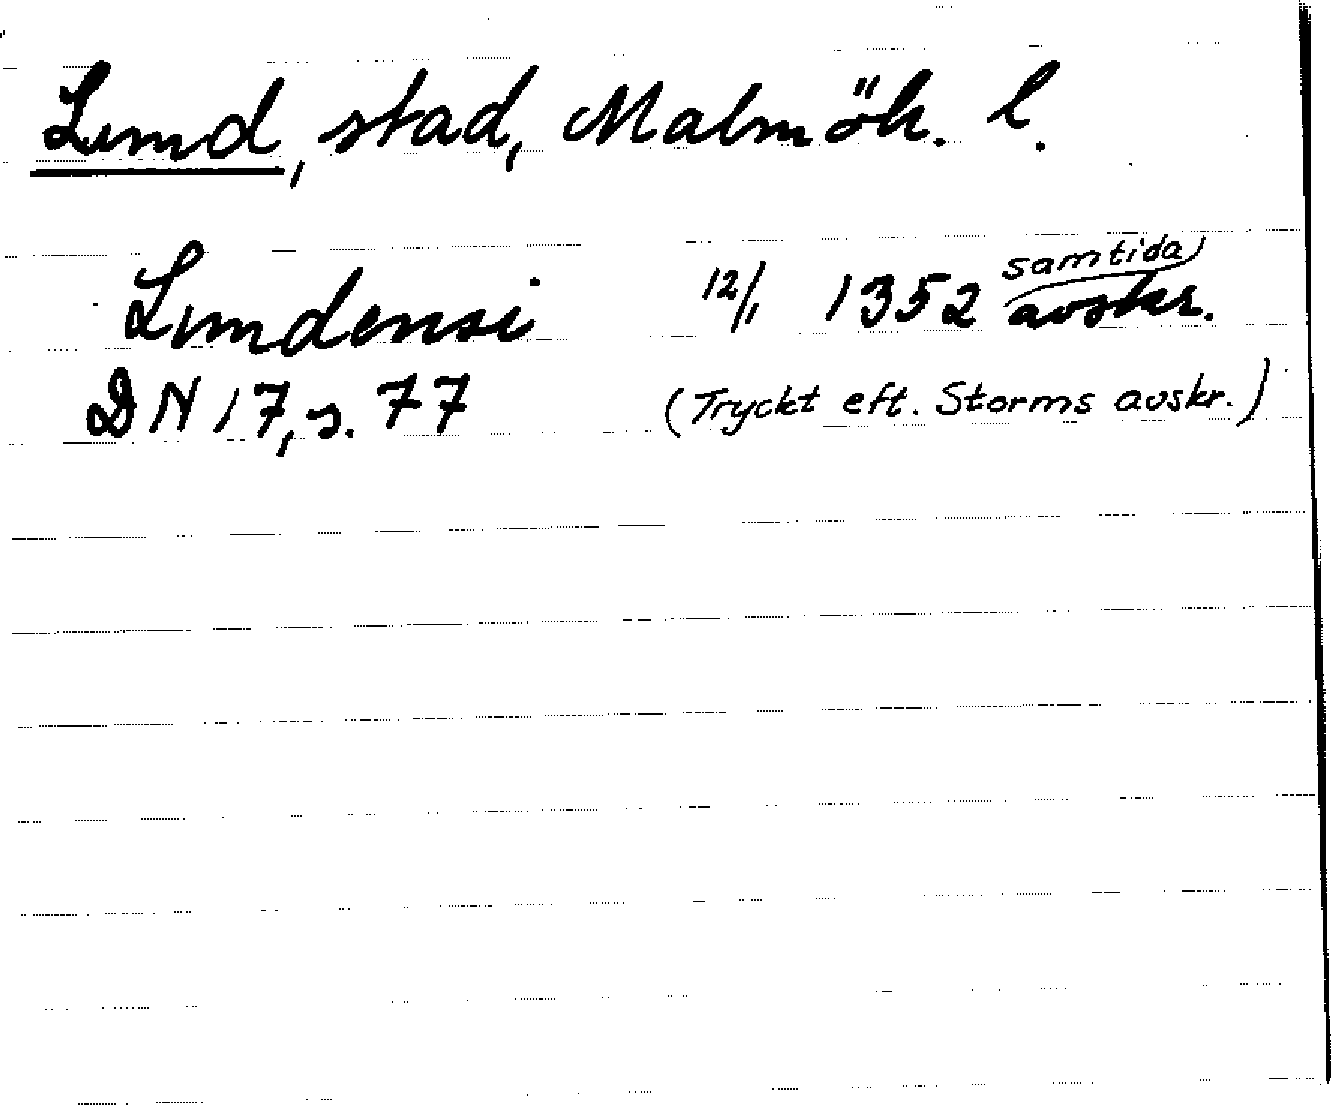 Lund, stad, Malmöh. l.
Lundensi 12/1 1352 samtida avskr.
DN 17, s. 77 (Tryckt eft. Storms avskr.)